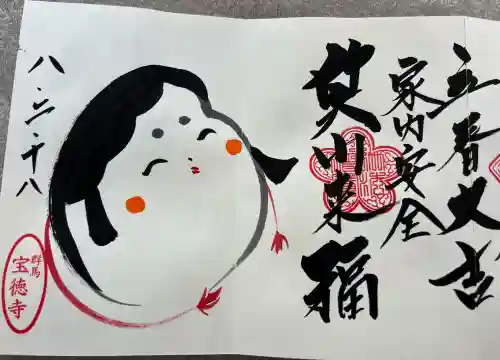 立春大吉
家内安全
笑門来福
八・二・十八
群馬
宝徳寺